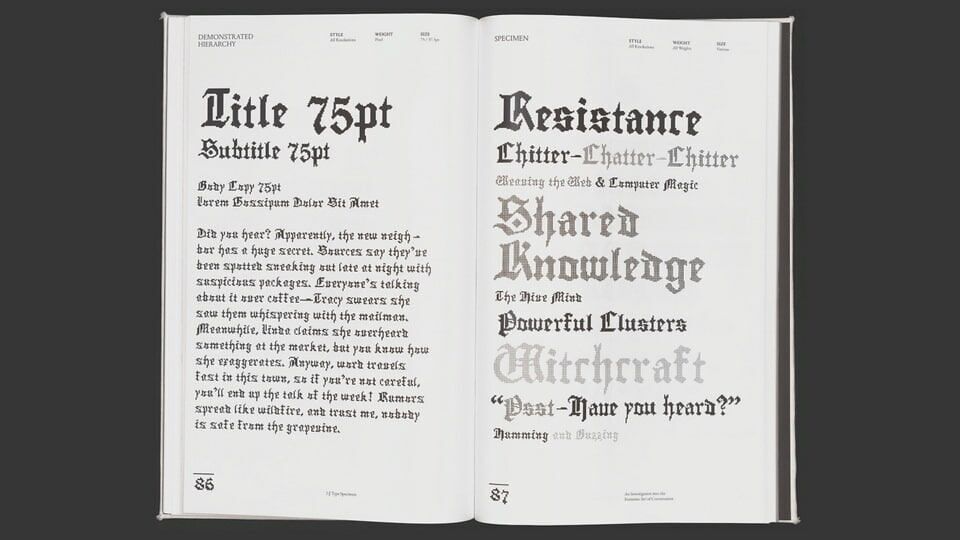 DEMONSTRATED
HIERARCHY
STYLE
All Resolutions
WEIGHT
Pixel
SIZE
Title 75pt
Subtitle 75pt
Body Copy 75pt
Lorem Gossipum Dolor Sit Amet
Did you hear? Apparently, the new neigh-
bor has a huge secret. Sources say they've
been spotted sneaking out late at night with
suspicious packages. Everyone's talking
about it over coffee—Tracy swears she
saw them whispering with the mailman.
Meanwhile, Linda claims she overheard
something at the market, but you know how
she exaggerates. Anyway, word travels
fast in this town, so if you're not careful,
you'll end up the talk of the week! Rumors
spread like wildfire, and trust me, nobody
is safe from the grapevine.
86
Type Specimen
SPECIMEN
STYLE
All Resolutions
WEIGHT
All Weights
SIZE
Various
Resistance
Chitter-Chatter-Chitter
Weaving the Web & Computer Magic
Shared
Knowledge
The Hive Mind
Powerful Clusters
Witchcraft
“Psst-Have you heard?”
Humming and Buzzing
87
An Investigation into the
Feminine Art of Conversation